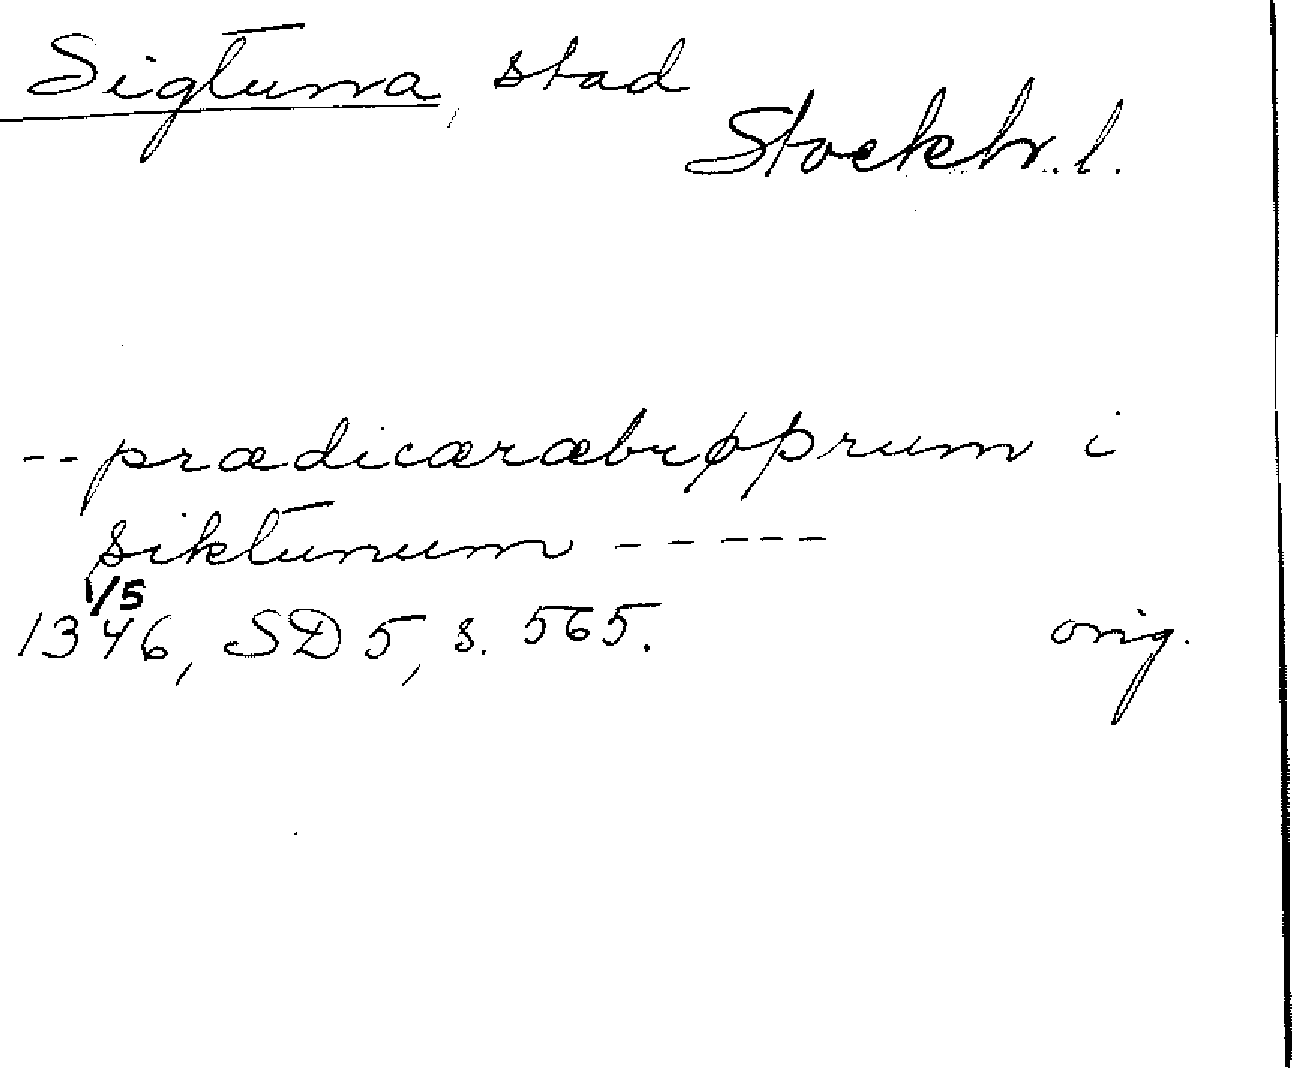 Sigtuna, stad
Stockh. l.
-- prædicæræbrøþrum i
siktunum -----
1/5
1346, SD 5, s. 565. orig.